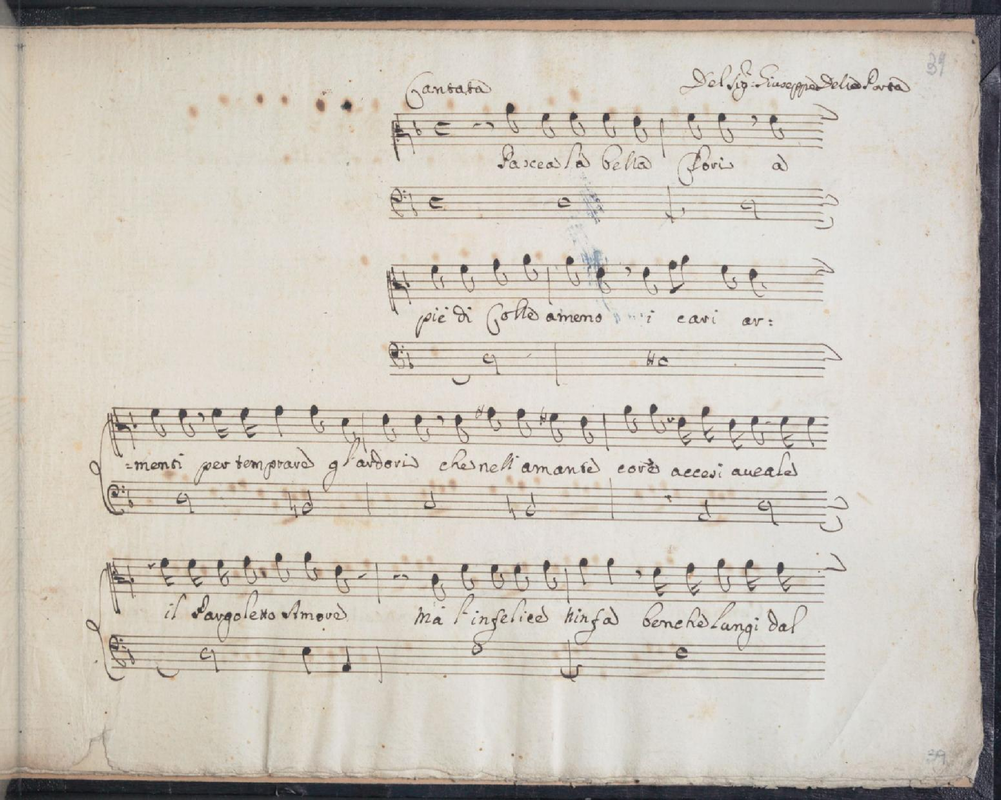 39
Cantata Del Sig.r Giuseppe Della Porta
Pascea la bella Clori à
piè di Colle ameno i cari ar:
=menti per temprare gl'ardori che nell'amante core accesi avea le
il Pargoletto Amore mà l'infelice Ninfa benche lungi dal
39